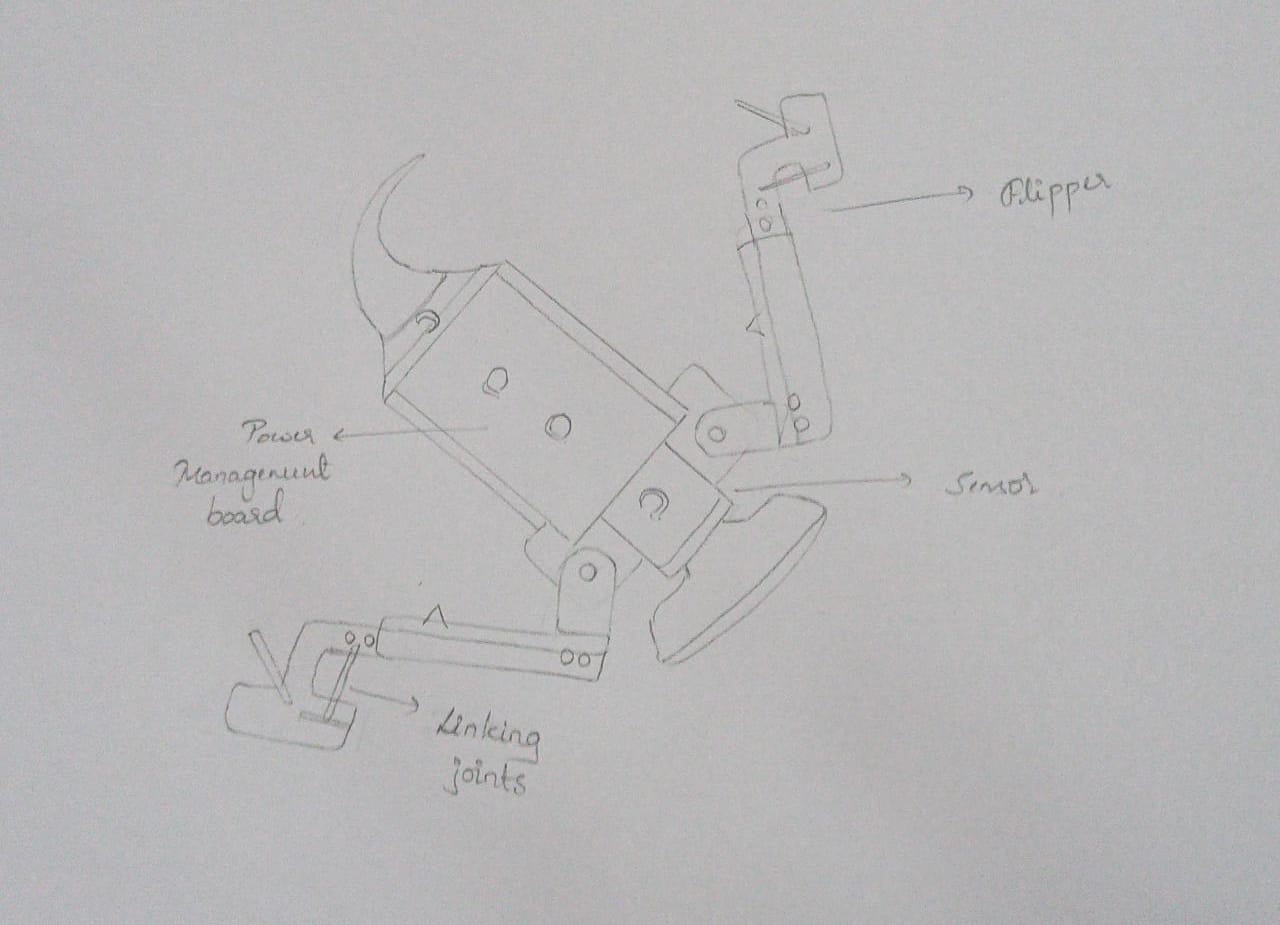 Flipper
Power
Management
board
Sensor
Linking
joints